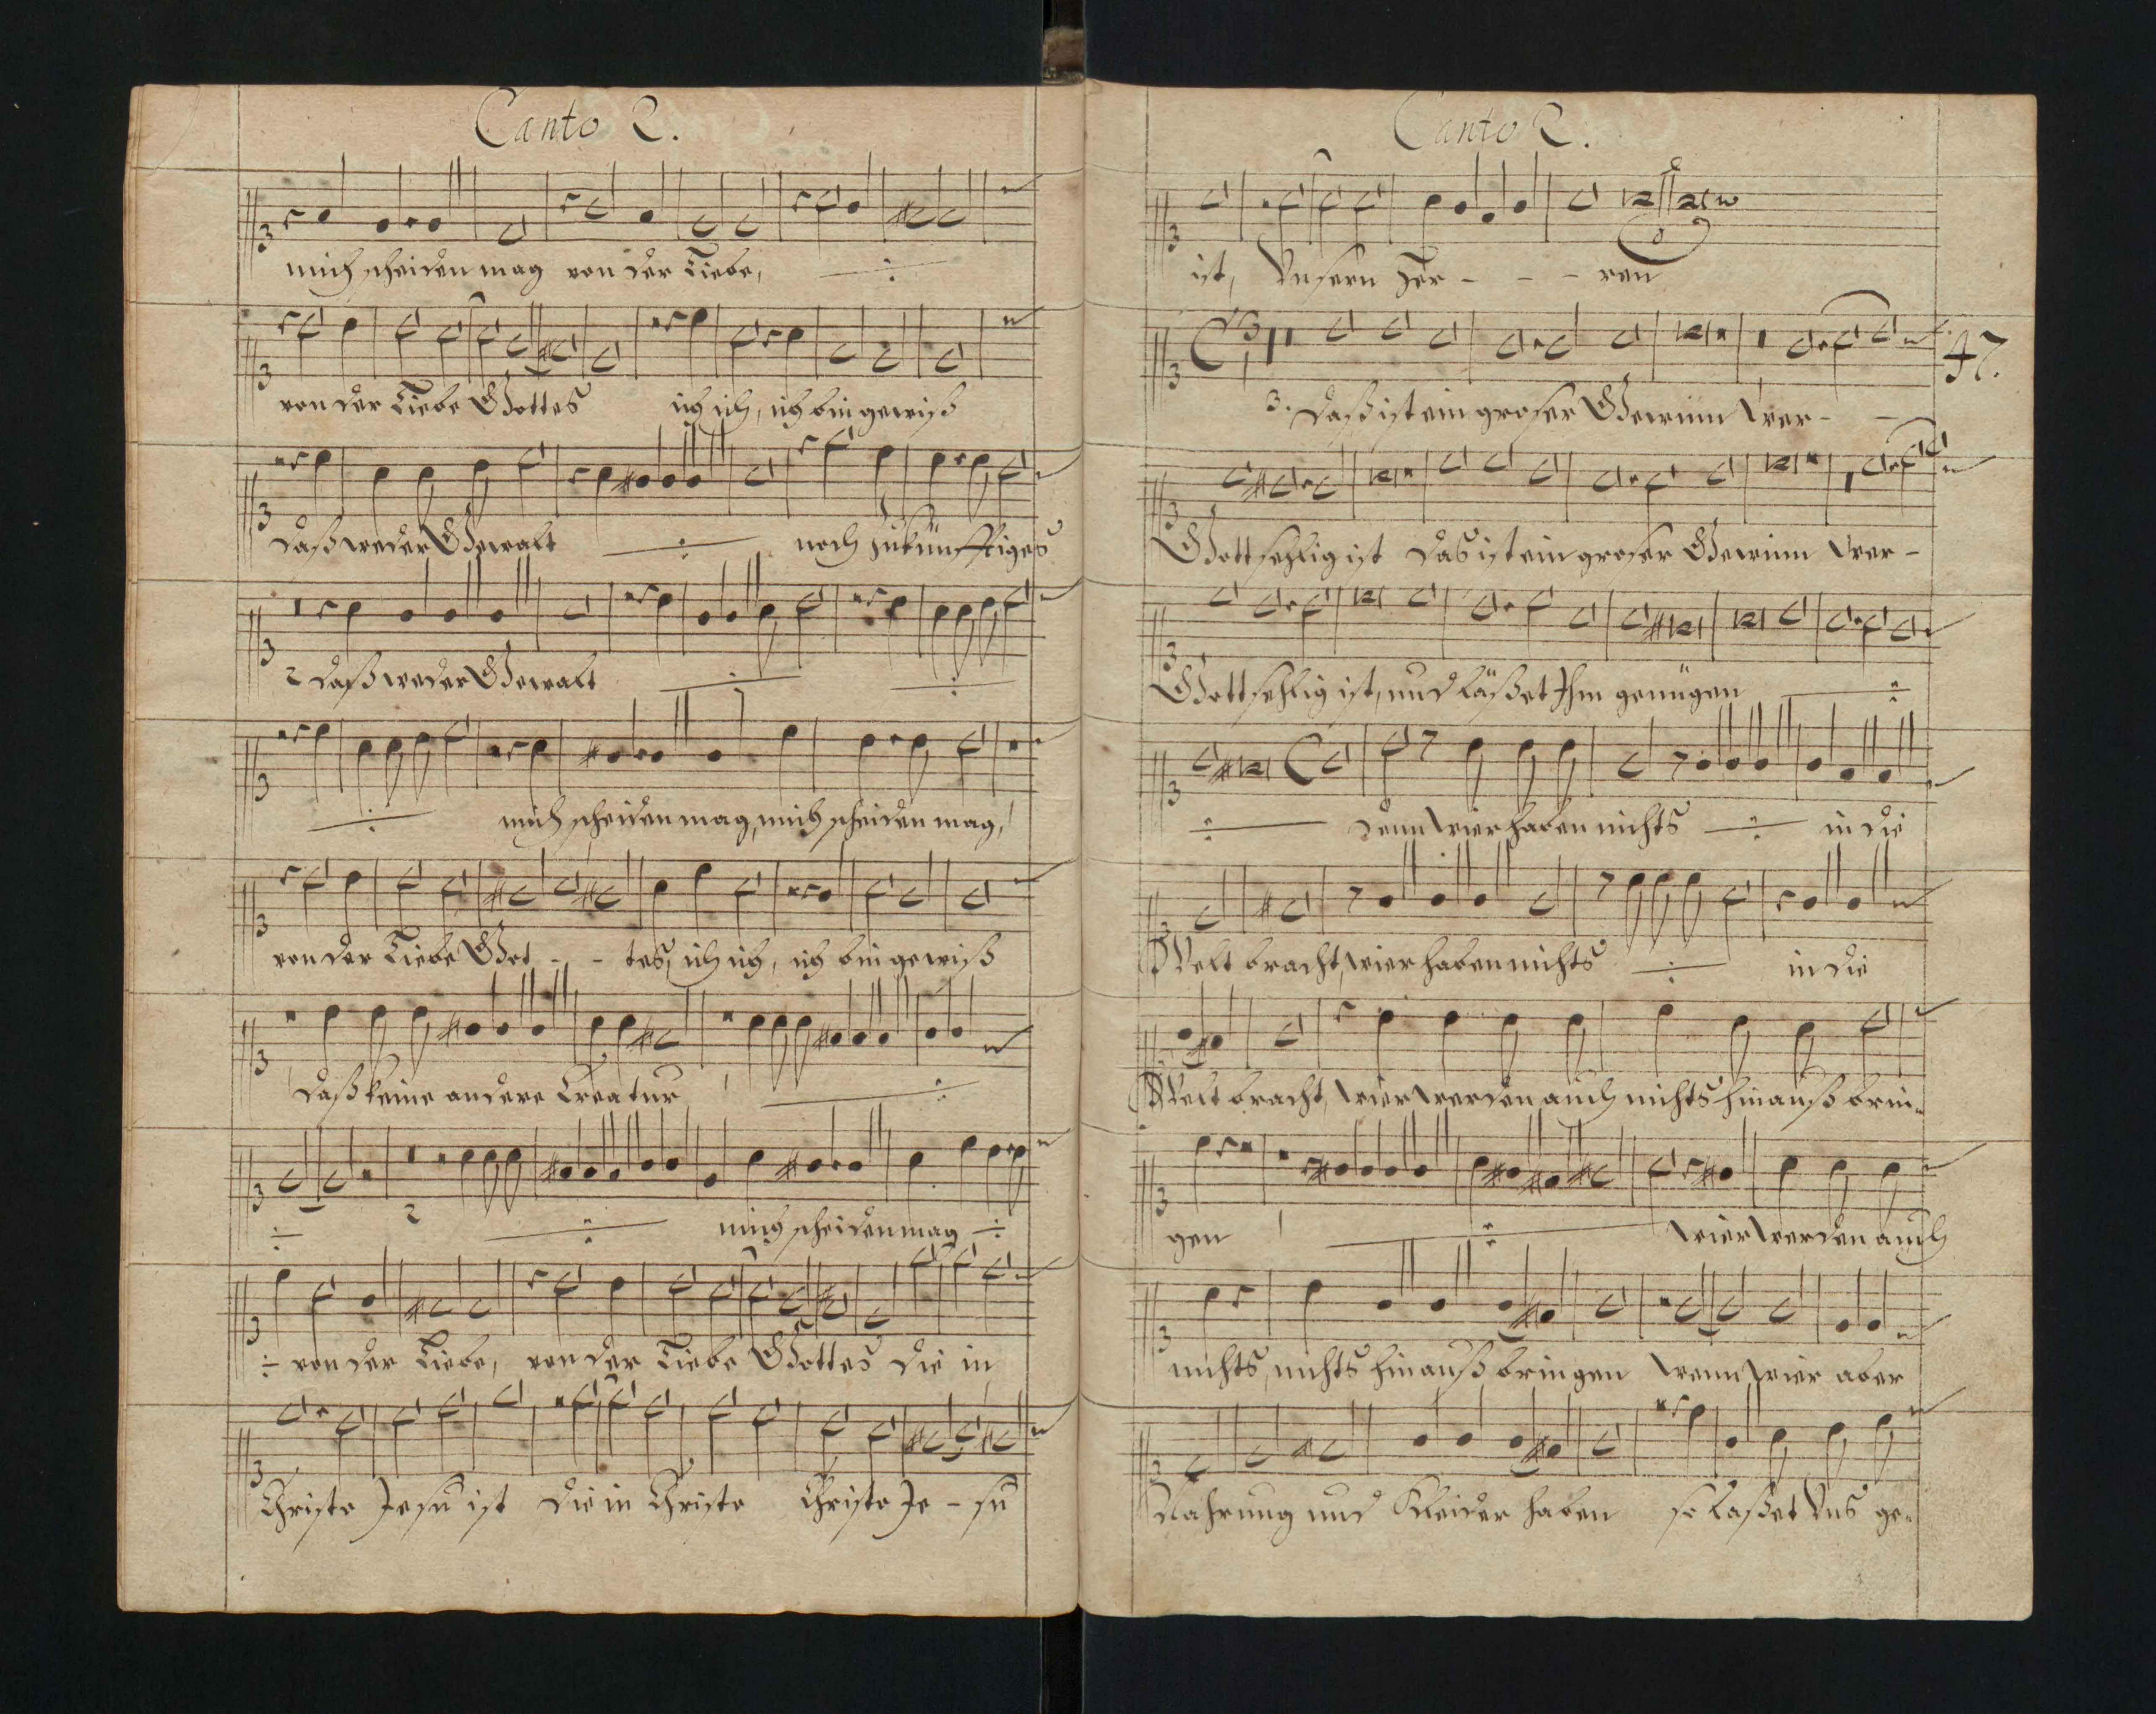 Canto 2.
mich scheiden mag von der Liebe, ÷
von der Liebe Gottes ich ich, ich bin gewiß
daß weder Gewalt ÷ noch zukünfftiges
2 daß weder Gewalt ÷ ÷
÷ mich scheiden mag, mich scheiden mag,
von der Liebe Got - - tes, ich ich, ich bin gewiß
daß keine andere Creatur ÷
÷ 2 ÷ mich scheiden mag ÷
÷ von der Liebe, von der Liebe Gottes die in
Christo Jesu ist die in Christo Christo Je - su
Canto 2.
ist, Unsern Her - - - ren
47.
3. Daß ist ein groser Gewinn wer - -
Gottsehlig ist das ist ein groser Gewinn wer -
Gottsehlig ist, und läßet Ihm genügen ÷
÷ denn wier haben nichts ÷ in die
Welt bracht, wier haben nichts ÷ in die
Welt bracht, wier werden auch nichts hinauß brin-
gen ÷ wier werden auch
nichts, nichts hinauß bringen wenn wier aber
Nahrung und Kleider haben so laßet Uns ge-